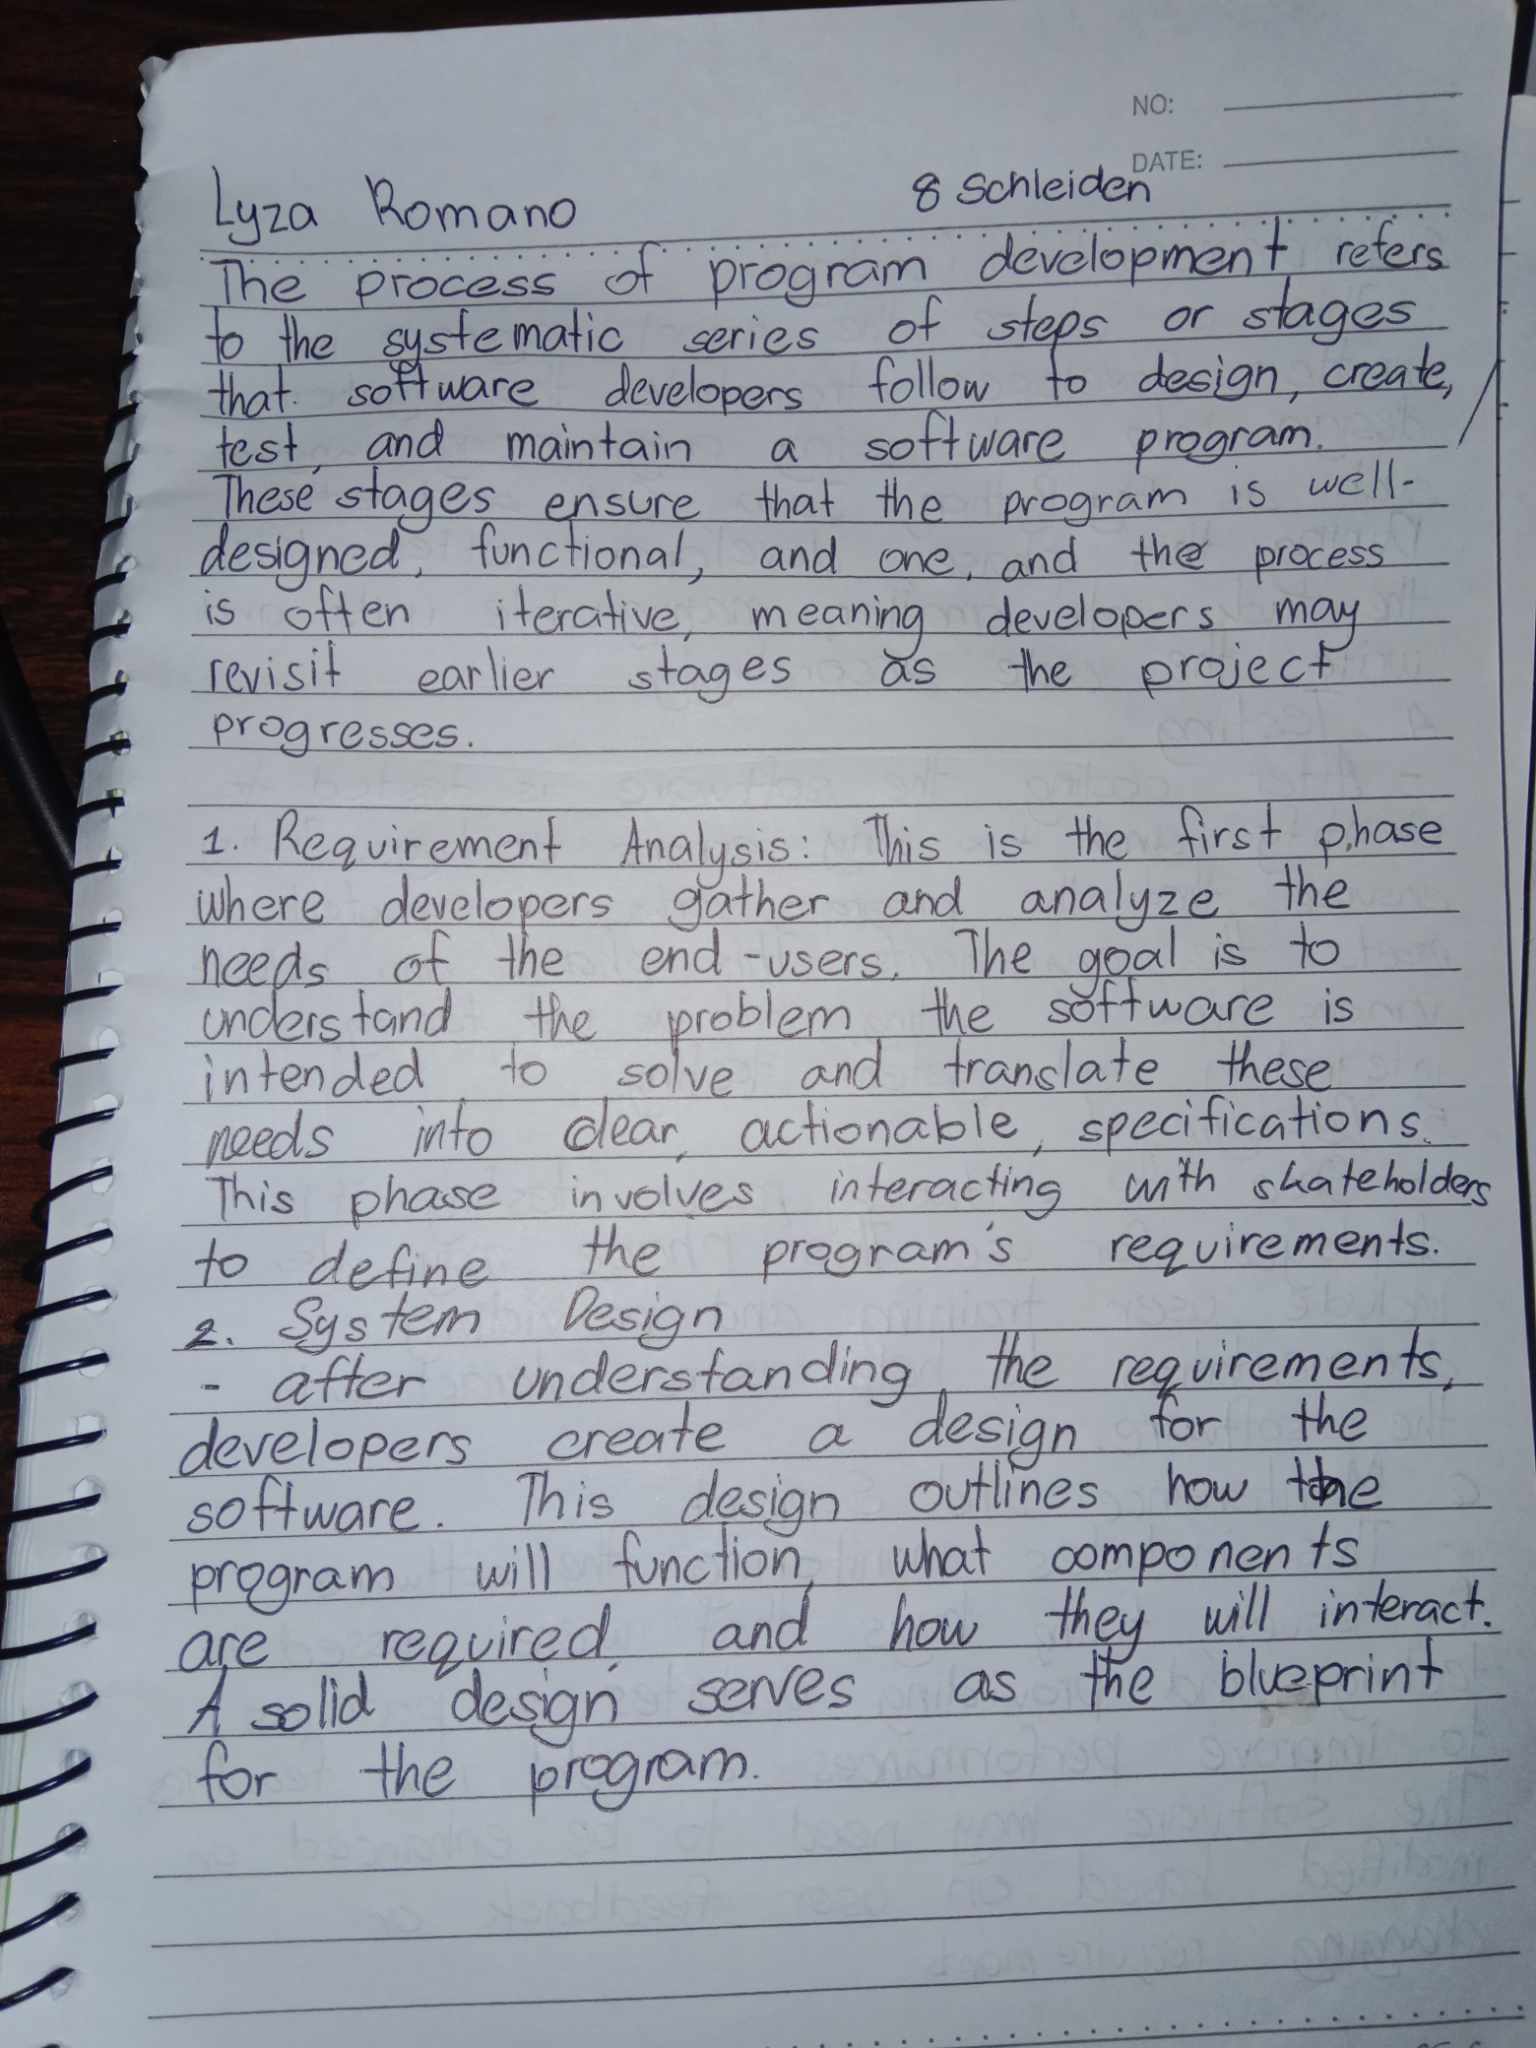 NO:
DATE:
Lyza Romano 8 Schleiden
The process of program development refers
to the systematic series of steps or stages
that software developers follow to design, create,
test, and maintain a software program.
These stages ensure that the program is well-
designed, functional, and one, and the process
is often iterative, meaning developers may
revisit earlier stages as the project
progresses.
1. Requirement Analysis: This is the first phase
where developers gather and analyze the
needs of the end-users. The goal is to
understand the problem the software is
intended to solve and translate these
needs into clear, actionable, specifications.
This phase involves interacting with skateholders
to define the program's requirements.
2. System Design
- after understanding the requirements,
developers create a design for the
software. This design outlines how the
program will function, what components
are required, and how they will interact.
A solid design serves as the blueprint
for the program.